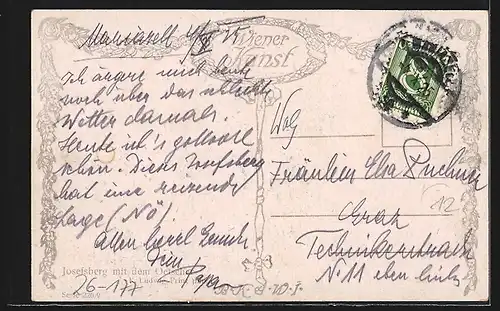 Mariazell 4/X 25
Wiener
Kunst
Ich ärgere mich heute
noch über das schlechte
Wetter damals.
Heute ist's gottvoll
schön. Dieses Josefsberg
hat eine reizende
Lage (NÖ)
Allen herzl
Dein
Papa
Josefsberg mit dem Oetscher
26-177
Wolg
Fräulein Elsa Puchner
Graz
Technikerstraße
N 11 eben links
12